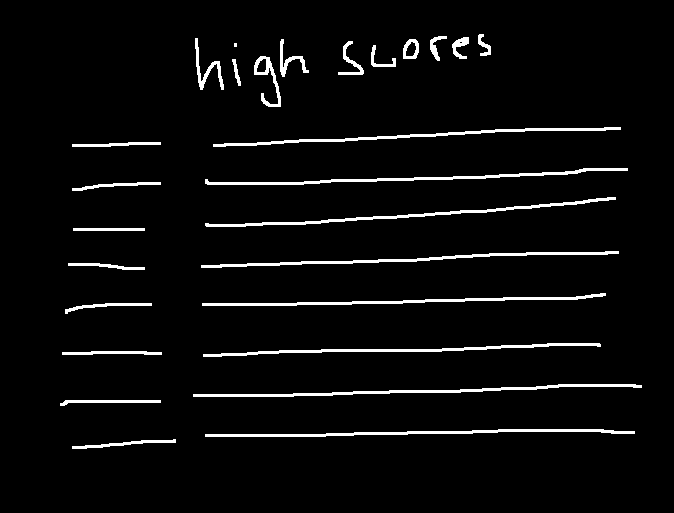 high scores